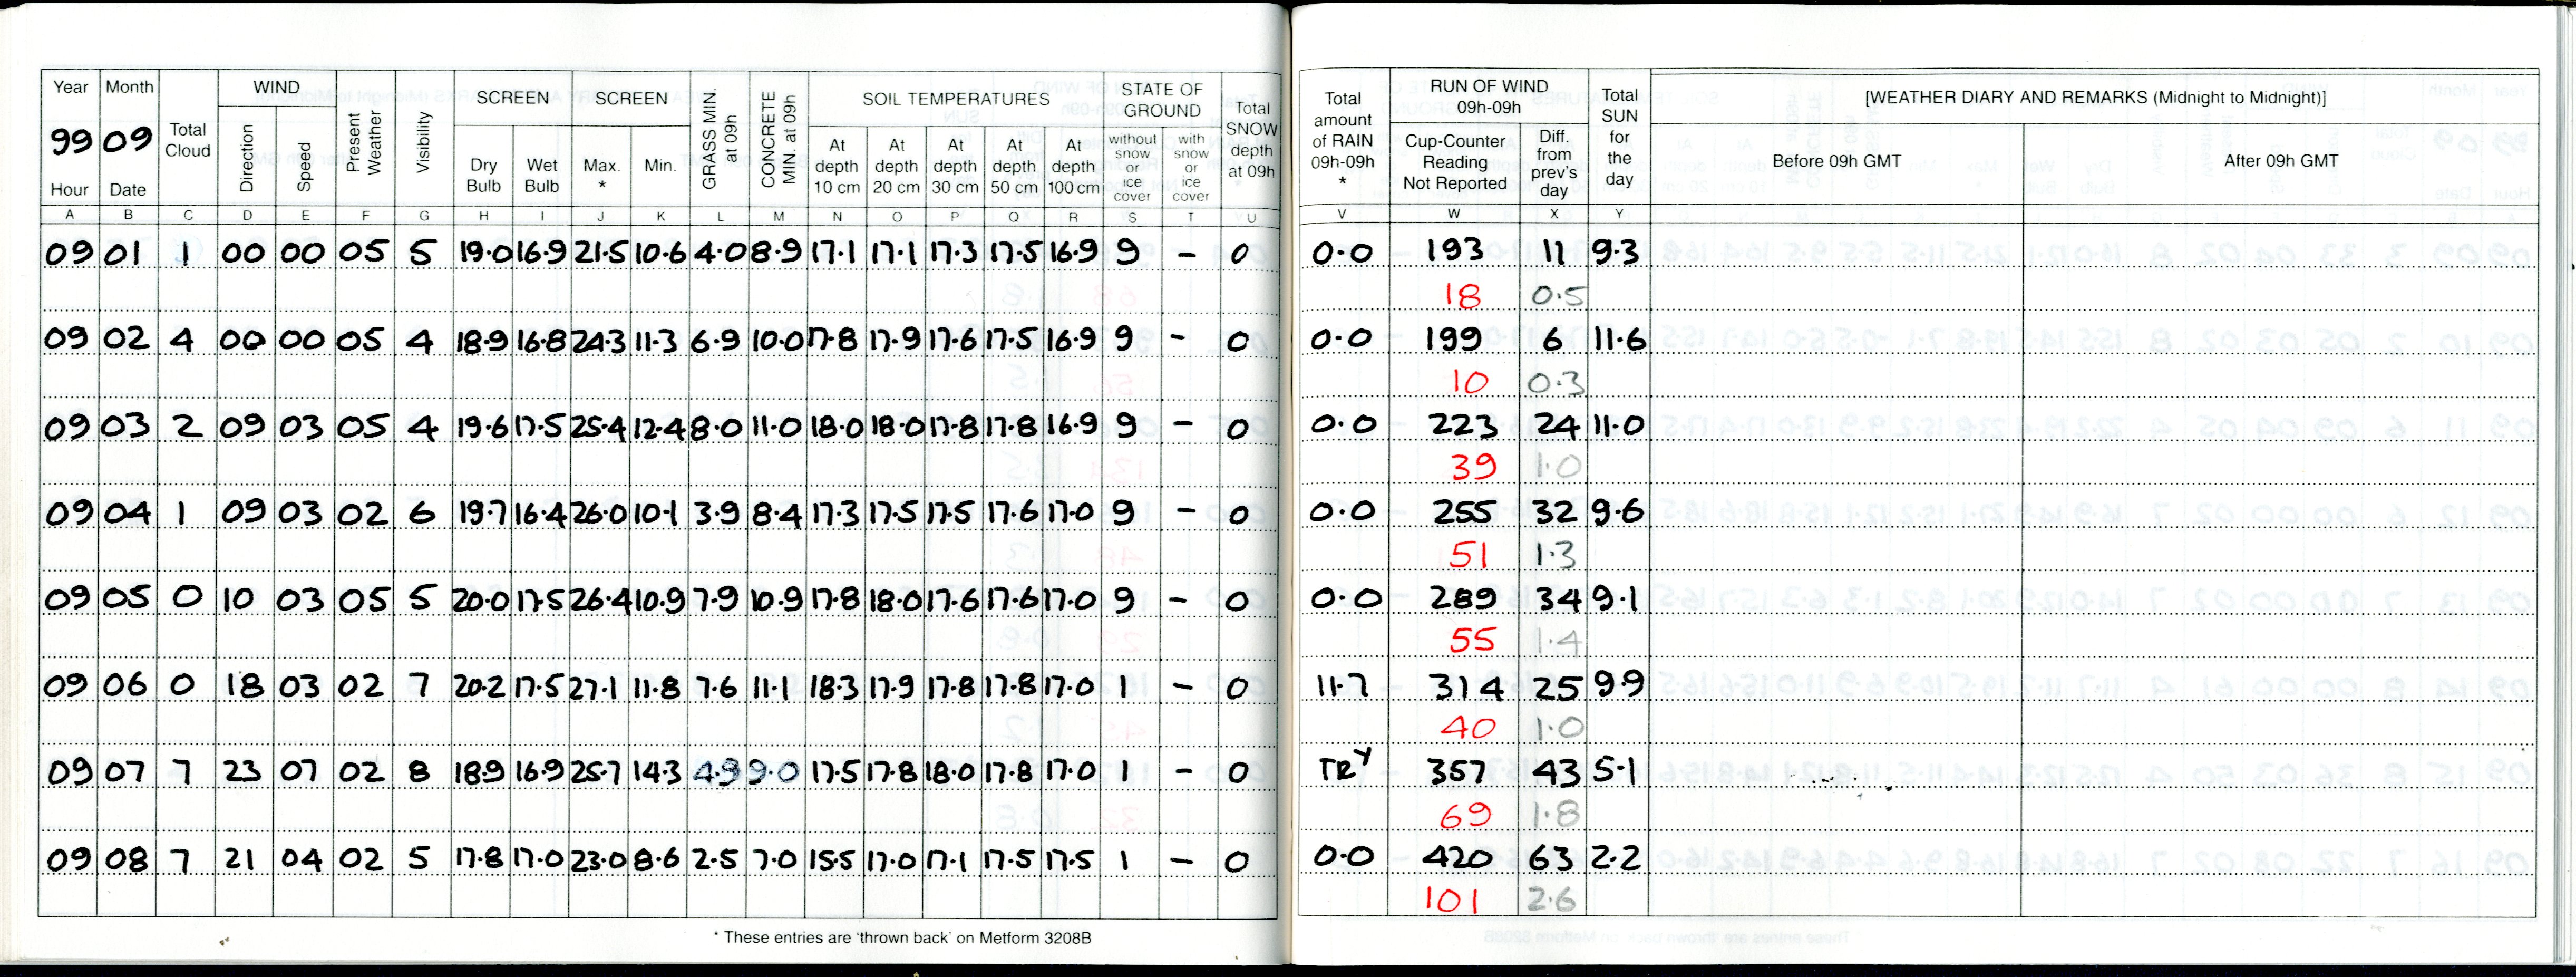 Year Month Total Cloud WIND Present Weather Visibility SCREEN SCREEN GRASS MIN. at 09h CONCRETE MIN. at 09h SOIL TEMPERATURES STATE OF GROUND Total SNOW depth at 09h Total amount of RAIN 09h-09h * RUN OF WIND 09h-09h Total SUN for the day [WEATHER DIARY AND REMARKS (Midnight to Midnight)]
99 09 Direction Speed Dry Bulb Wet Bulb Max. * Min. At depth 10 cm At depth 20 cm At depth 30 cm At depth 50 cm At depth 100 cm without snow or ice cover with snow or ice cover Cup-Counter Reading Not Reported Diff. from prev's day Before 09h GMT After 09h GMT
Hour Date
A B C D E F G H I J K L M N O P Q R S T U V W X Y
09 01 1 00 00 05 5 19.0 16.9 21.5 10.6 4.0 8.9 17.1 17.1 17.3 17.5 16.9 9 - 0 0.0 193 11 9.3
18 0.5
09 02 4 00 00 05 4 18.9 16.8 24.3 11.3 6.9 10.0 17.8 17.9 17.6 17.5 16.9 9 - 0 0.0 199 6 11.6
10 0.3
09 03 2 09 03 05 4 19.6 17.5 25.4 12.4 8.0 11.0 18.0 18.0 17.8 17.8 16.9 9 - 0 0.0 223 24 11.0
39 1.0
09 04 1 09 03 02 6 19.7 16.4 26.0 10.1 3.9 8.4 17.3 17.5 17.5 17.6 17.0 9 - 0 0.0 255 32 9.6
51 1.3
09 05 0 10 03 05 5 20.0 17.5 26.4 10.9 7.9 10.9 17.8 18.0 17.6 17.6 17.0 9 - 0 0.0 289 34 9.1
55 1.4
09 06 0 18 03 02 7 20.2 17.5 27.1 11.8 7.6 11.1 18.3 17.9 17.8 17.8 17.0 1 - 0 11.7 314 25 9.9
40 1.0
09 07 7 23 07 02 8 18.9 16.9 25.7 14.3 4.9 9.0 17.5 17.8 18.0 17.8 17.0 1 - 0 TR 357 43 5.1
69 1.8
09 08 7 21 04 02 5 17.8 17.0 23.0 8.6 2.5 7.0 15.5 17.0 17.1 17.5 17.5 1 - 0 0.0 420 63 2.2
101 2.6
* These entries are 'thrown back' on Metform 3208B